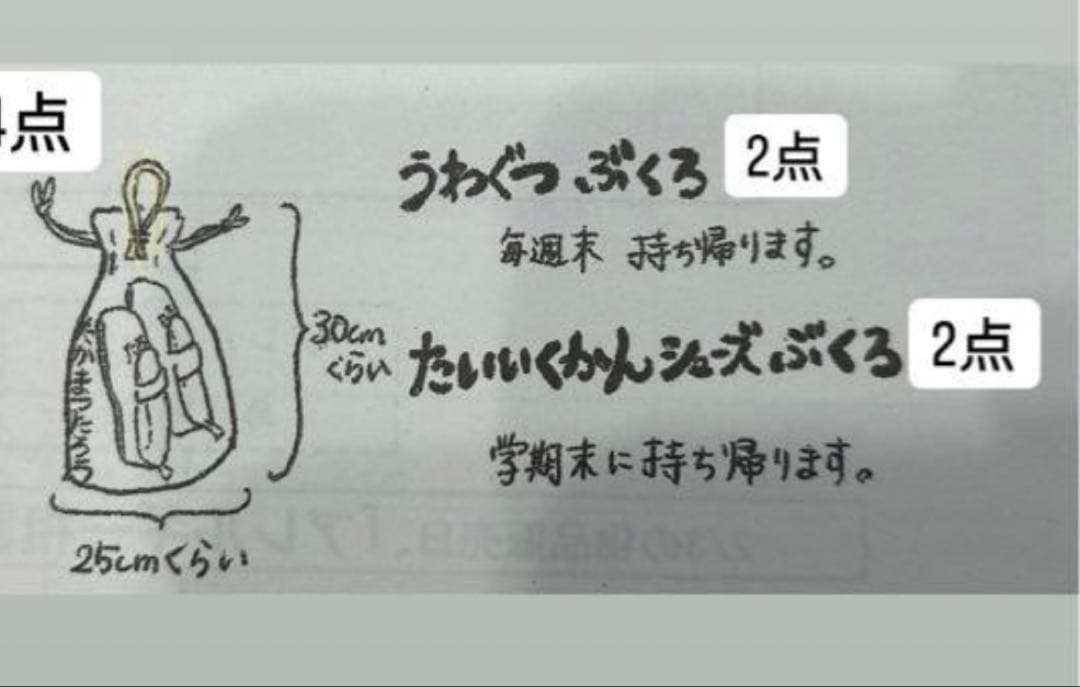 点
うわぐつ ぶくろ 2点
毎週末 持ち帰ります。
30cm
ぐらい
たいいくかんシューズ ぶくろ 2点
学期末に持ち帰ります。
25cmくらい